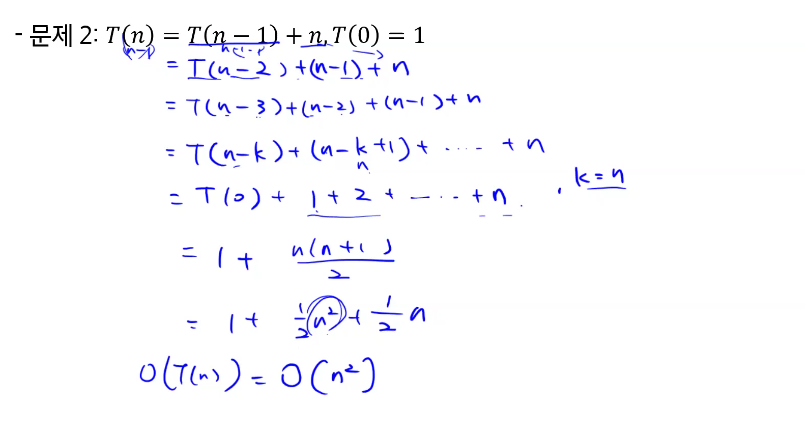 - 문제 2: T(n) = T(n − 1) + n, T(0) = 1
(n-1)
= T(n-2) + (n-1) + n
= T(n-3) + (n-2) + (n-1) + n
= T(n-k) + (n-k+1) + ···· + n
n
= T(0) + 1 + 2 + ····· + n . , k=n
= 1 + n(n+1)/2
= 1 + 1/2 n² + 1/2 n
O(T(n)) = O(n²)